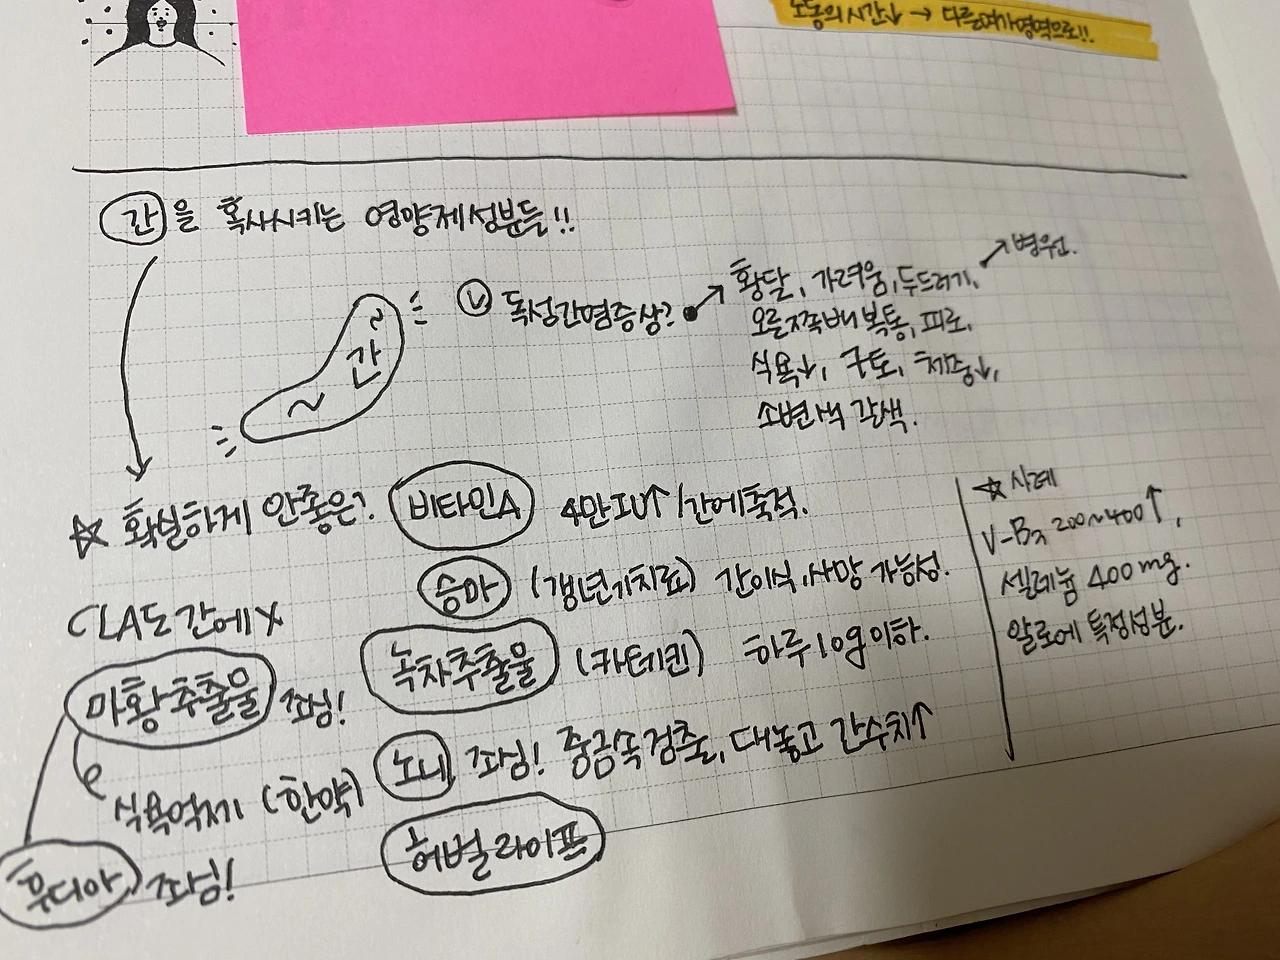 노동의 시간↓ → 다른여가영역으로!!
간을 혹사시키는 영양제성분들!!
간
독성간염증상? → 황달, 가려움, 두드러기, → 병원.
오른쪽배 복통, 피로,
식욕↓, 구토, 체중↓,
소변색 갈색.
☆ 확실하게 안좋은? 비타민A 4만IU↑/간에축적.
승마 (갱년기치료) 간이식, 사망 가능성.
CLA도 간에 X 녹차추출물 (카테킨) 하루 10g이하.
마황추출물 조심! 노니 조심! 중금속검출, 대놓고 간수치↑
식욕억제 (한약) 허벌라이프
후디아 조심!
☆ 사례
V-B3 200~400↑,
셀레늄 400mg.
알로에 특정성분.